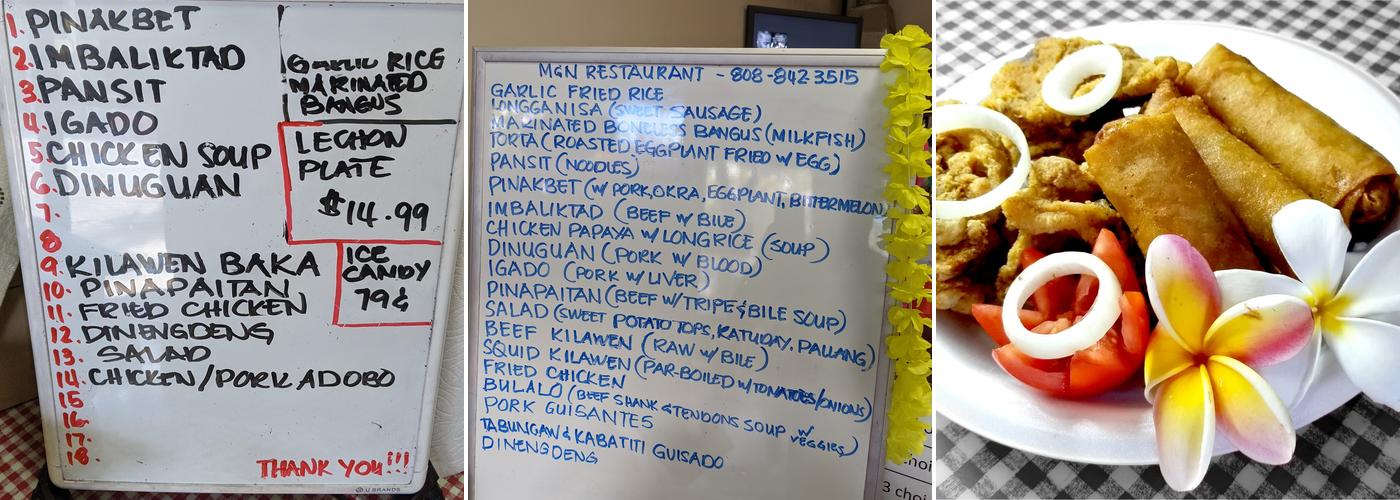 1. PINAKBET
2. IMBALIKTAD
3. PANSIT
4. IGADO
5. CHICKEN SOUP
6. DINUGUAN
7.
8
9. KILAWEN BAKA
10. PINAPAITAN
11. FRIED CHICKEN
12. DINENGDENG
13. SALAD
14. CHICKEN/PORK ADOBO
15
16.
17.
18.
GARLIC RICE
MARINATED
BANGUS
LECHON
PLATE
$14.99
ICE
CANDY
79¢
THANK YOU!!!
U BRANDS
M&N RESTAURANT - 808-842 3515
GARLIC FRIED RICE
LONGGANISA (SWEET SAUSAGE)
MARINATED BONELESS BANGUS (MILKFISH)
TORTA (ROASTED EGGPLANT FRIED W/ EGG)
PANSIT (NOODLES)
PINAKBET (W/ PORK, OKRA, EGGPLANT, BITTERMELON)
IMBALIKTAD (BEEF W/ BILE)
CHICKEN PAPAYA W/ LONG RICE (SOUP)
DINUGUAN (PORK W/ BLOOD)
IGADO (PORK W/ LIVER)
PINAPAITAN (BEEF W/ TRIPE & BILE SOUP)
SALAD (SWEET POTATO TOPS, KATUDAY, PALLANG)
BEEF KILAWEN (RAW W/ BILE)
SQUID KILAWEN (PAR-BOILED W/ TOMATOES/ONIONS)
FRIED CHICKEN
BULALO (BEEF SHANK & TENDONS SOUP W/ VEGGIES)
PORK GUISANTES
TABUNGAW & KABATITI GUISADO
DINENGDENG
choi
3 choi